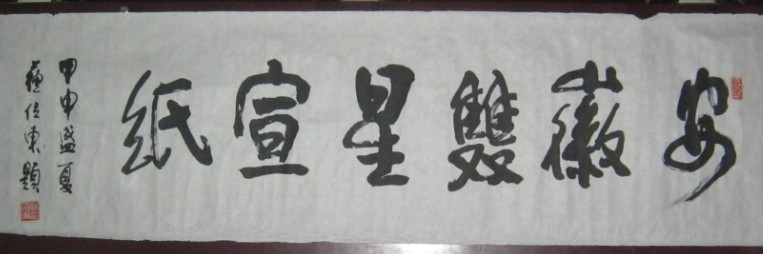 安徽雙星宣紙
甲申盛夏
蘓位東題